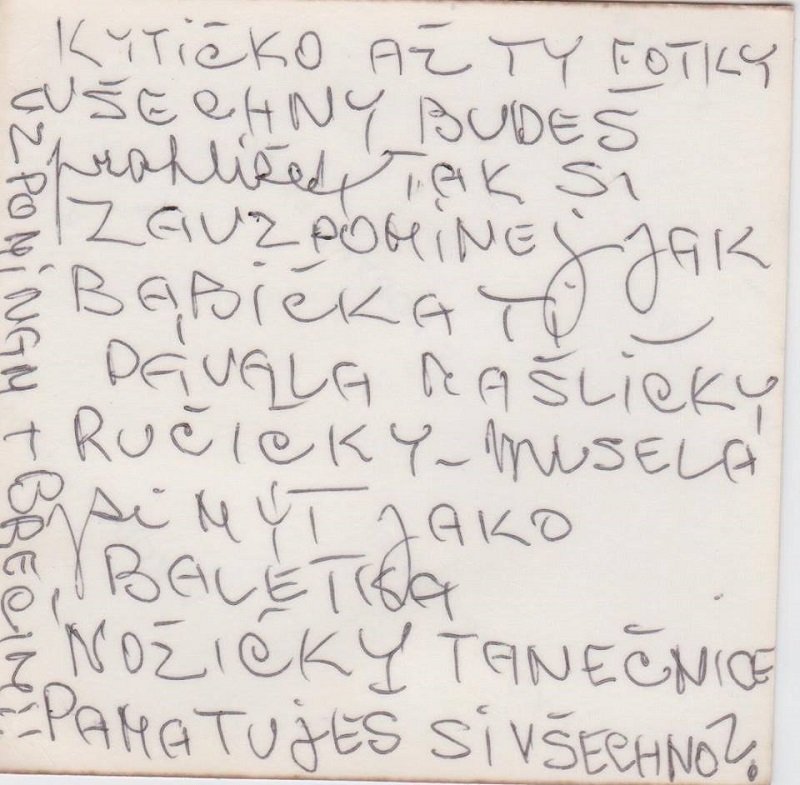 KYTIČKO AŽ TY FOTKY
VŠECHNY BUDEŠ
prohlížet TAK SI
ZAVZPOMÍNEJ JAK
BABIČKA TI
DÁVALA MAŠLIČKY
RUČIČKY – MUSELA
jsi MÝT JAKO
BALETKA
NOŽIČKY TANEČNICE
PAMATUJEŠ SI VŠECHNO?
VZPOMÍNÁM + BREČÍM!!